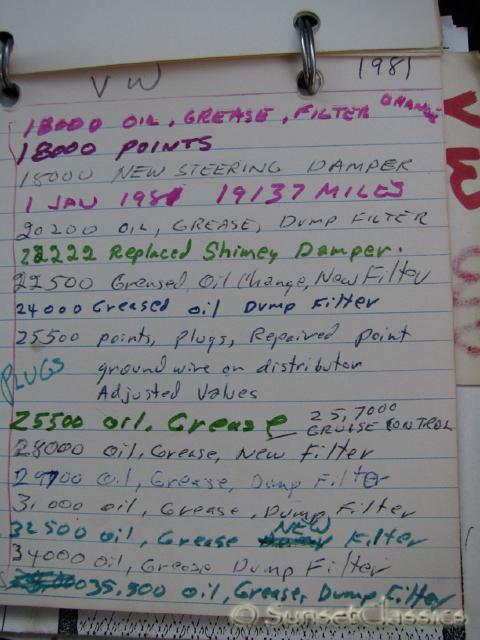 VW 1981
18000 OIL, GREASE, FILTER CHANGE
18000 POINTS
18000 NEW STEERING DAMPER
1 JAN 1981 19137 MILES
20200 OIL, GREASE, DUMP FILTER
22222 Replaced Shimey Damper.
22500 Greased, Oil Change, New Filter
24000 Greased oil Dump Filter
25500 points, plugs, Repaired point
PLUGS ground wire on distributor
Adjusted Values
25500 oil, Grease 25,7000
CRUISE CONTROL
28000 oil, Grease, New Filter
29700 oil, Grease, Dump Filter
31000 oil, Grease, Dump Filter
NEW
32500 oil, Grease Filter
34000 oil, Grease Dump Filter
35,500 oil, Grease, Dump Filter
VW
© SunsetClassics